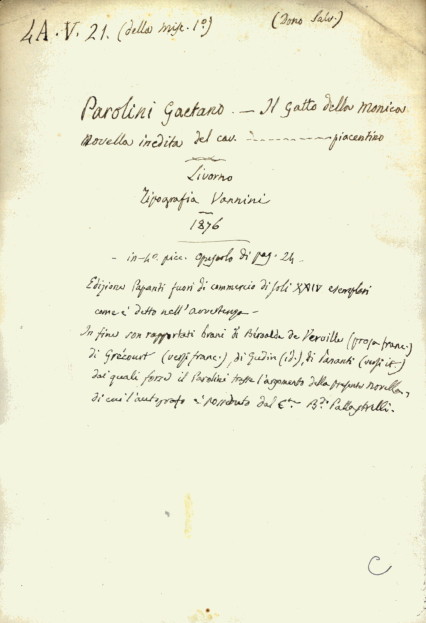 4A.V.21. (della Misc. 1º) (Dono Salv.)
Parolini Gaetano. — Il Gatto della Monica
Novella inedita del cav. ------------ piacentino
Livorno
Tipografia Vannini
1876
- in-4º. picc. opuscolo di pag. 24 -
Edizione Papanti fuori di commercio di soli XXIV esemplari
come è detto nell'Avvertenza -
In fine son rapportati brani di Béroalde de Verville (prosa franc.)
di Grécourt (versi franc.), di Gudin (id.), di Pananti (versi it.)
dai quali forse il Parolini trasse l'argomento della presente novella,
di cui l'autografo è posseduto dal C.te B.do Pallastrelli.
C